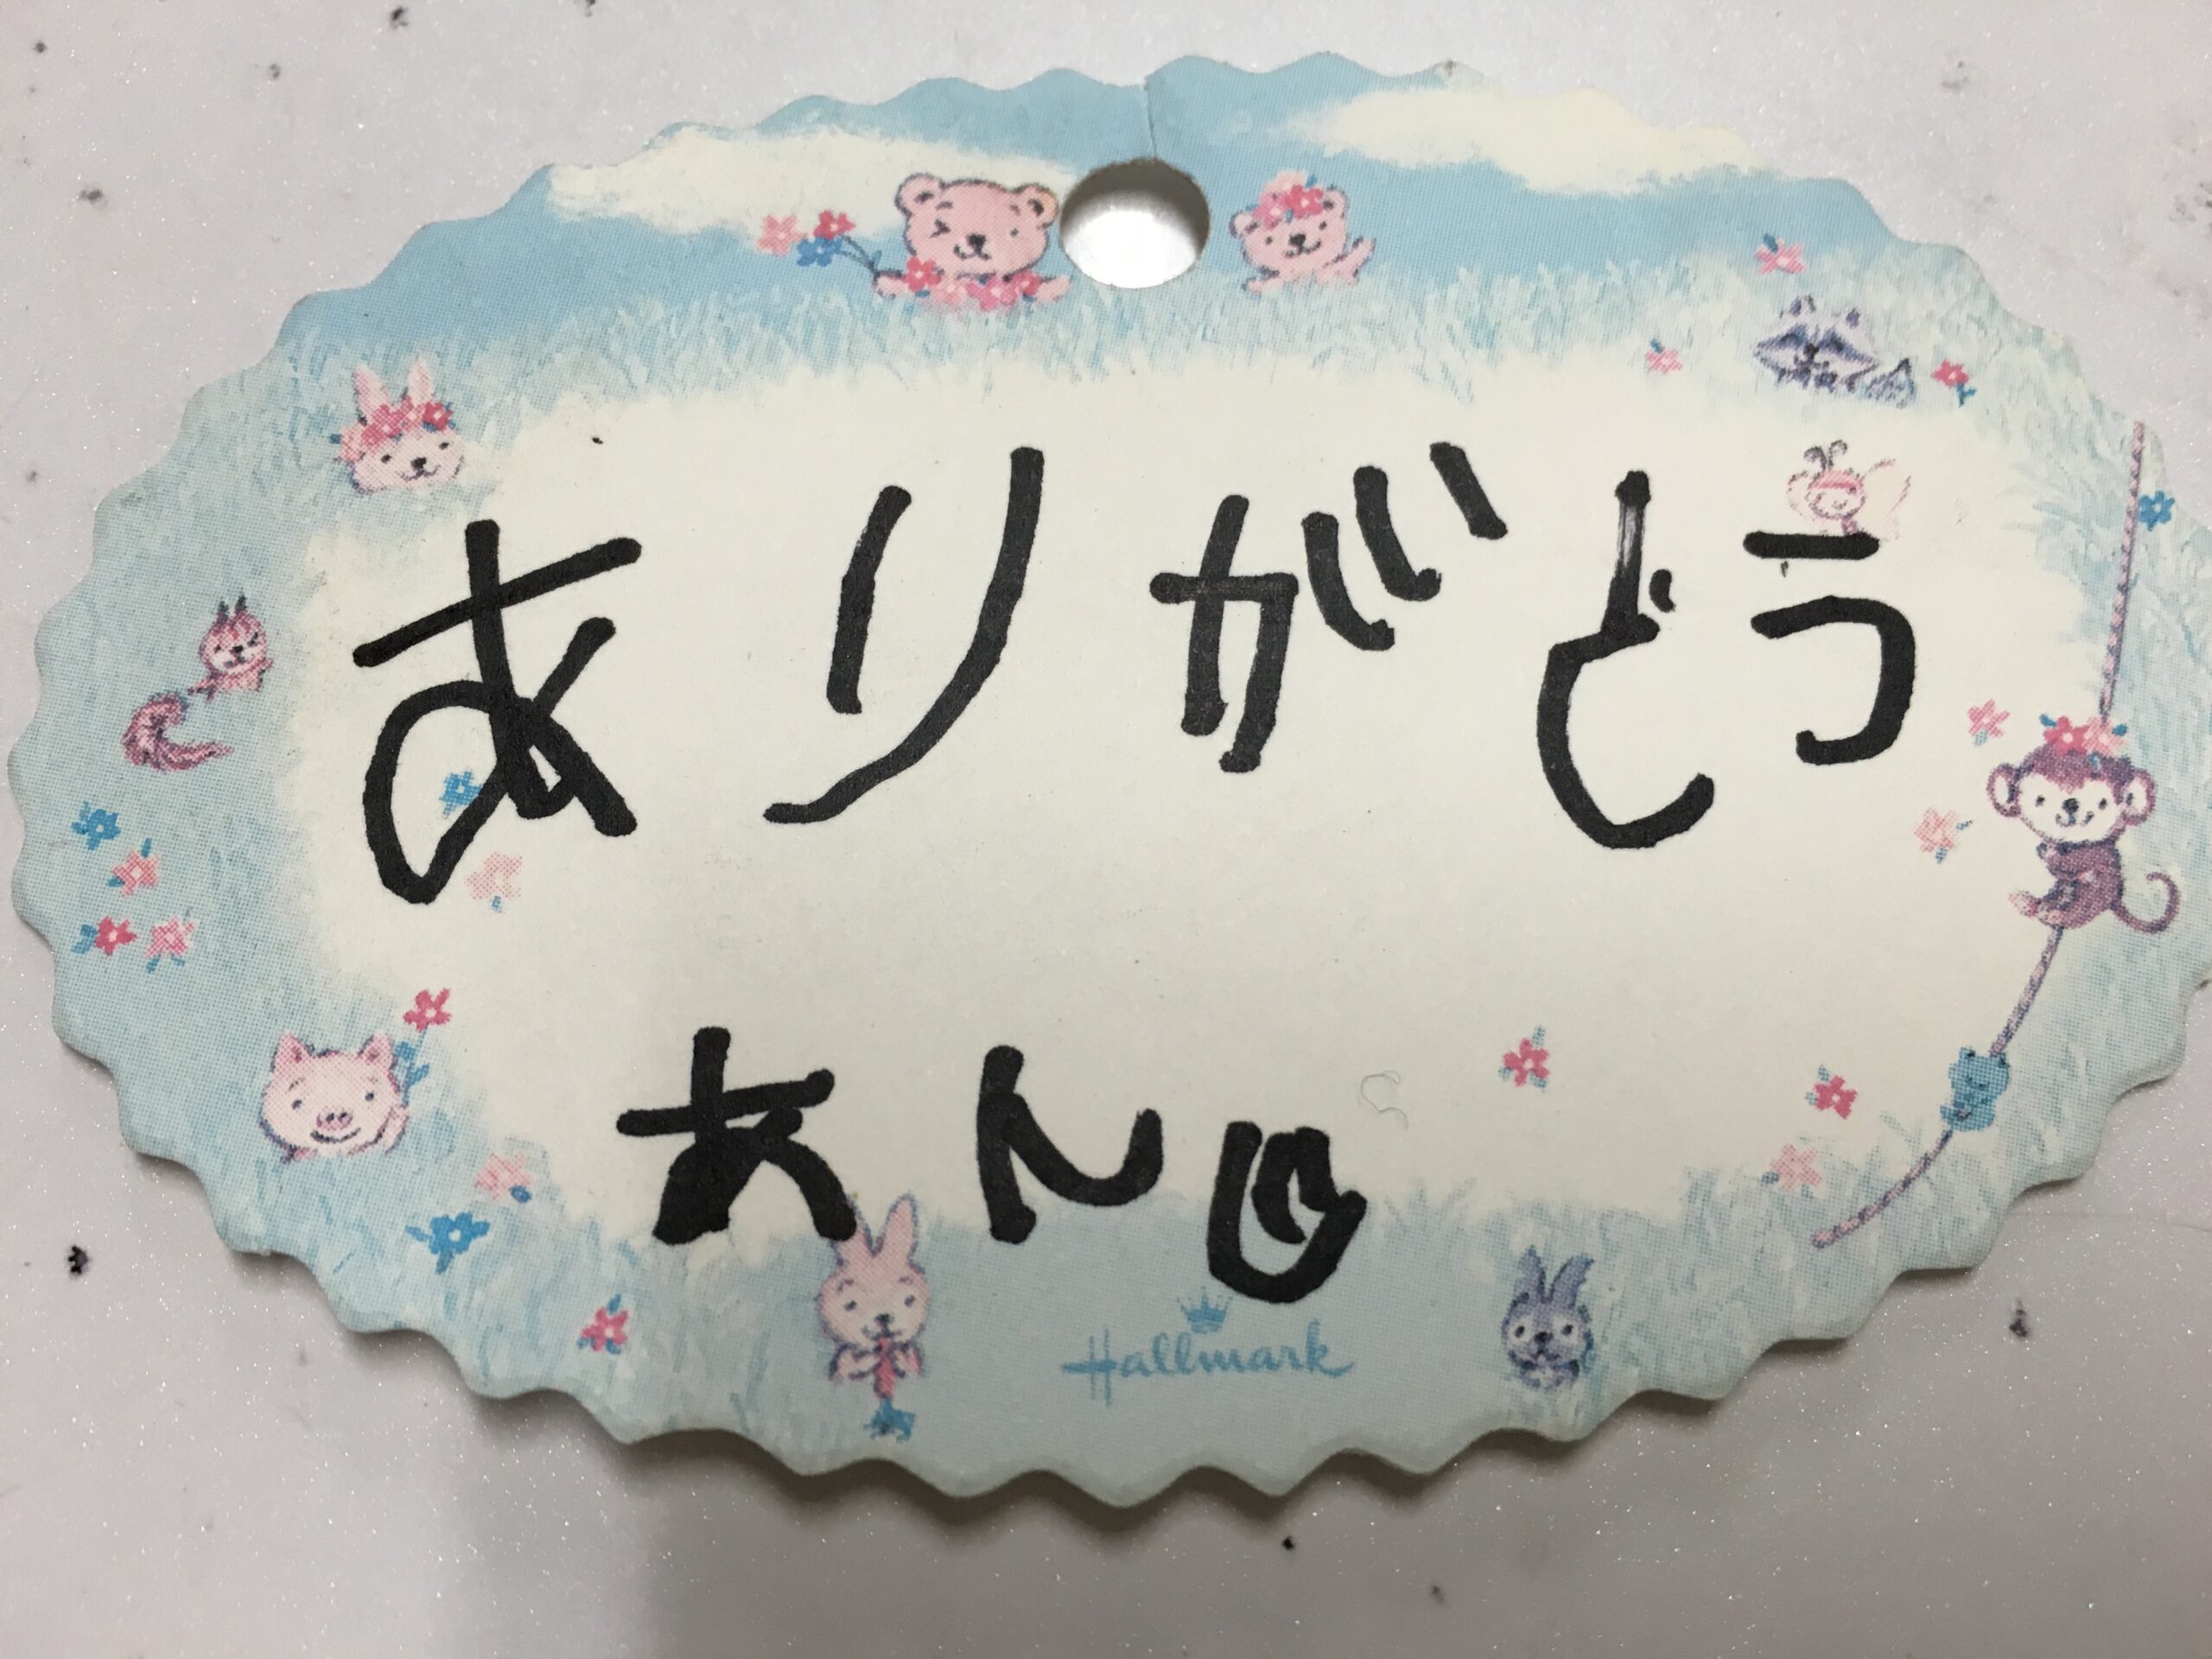 ありがとう
あん
Hallmark